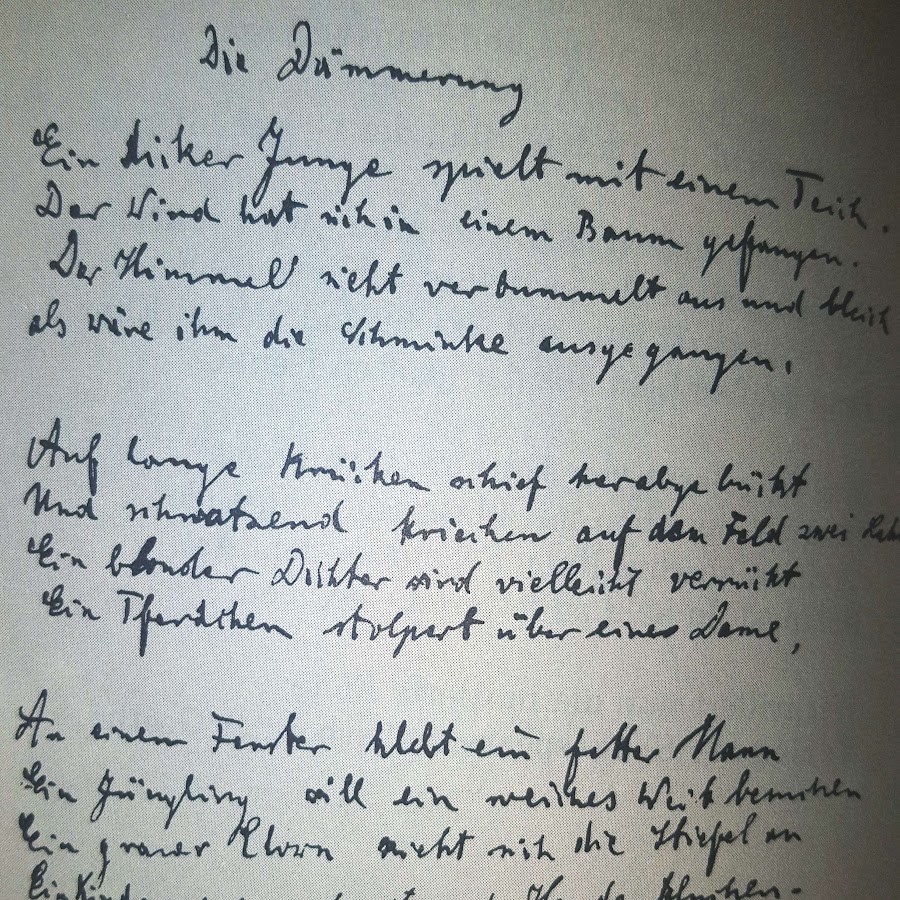 Die Dämmerung
Ein dicker Junge spielt mit einem Teich.
Der Wind hat sich in einem Baum gefangen.
Der Himmel sieht verbummelt aus und bleich
als wäre ihm die Schminke ausgegangen.
Auf lange Krücken schief herabgebückt
Und schwatzend kriechen auf dem Feld zwei
Ein blonder Dichter wird vielleicht verrückt
Ein Pferdchen stolpert über eine Dame,
An einem Fenster klebt ein fetter Mann
Ein Jüngling will ein weiches Weib besuchen
Ein grauer Clown zieht sich die Stiefel an
Ein